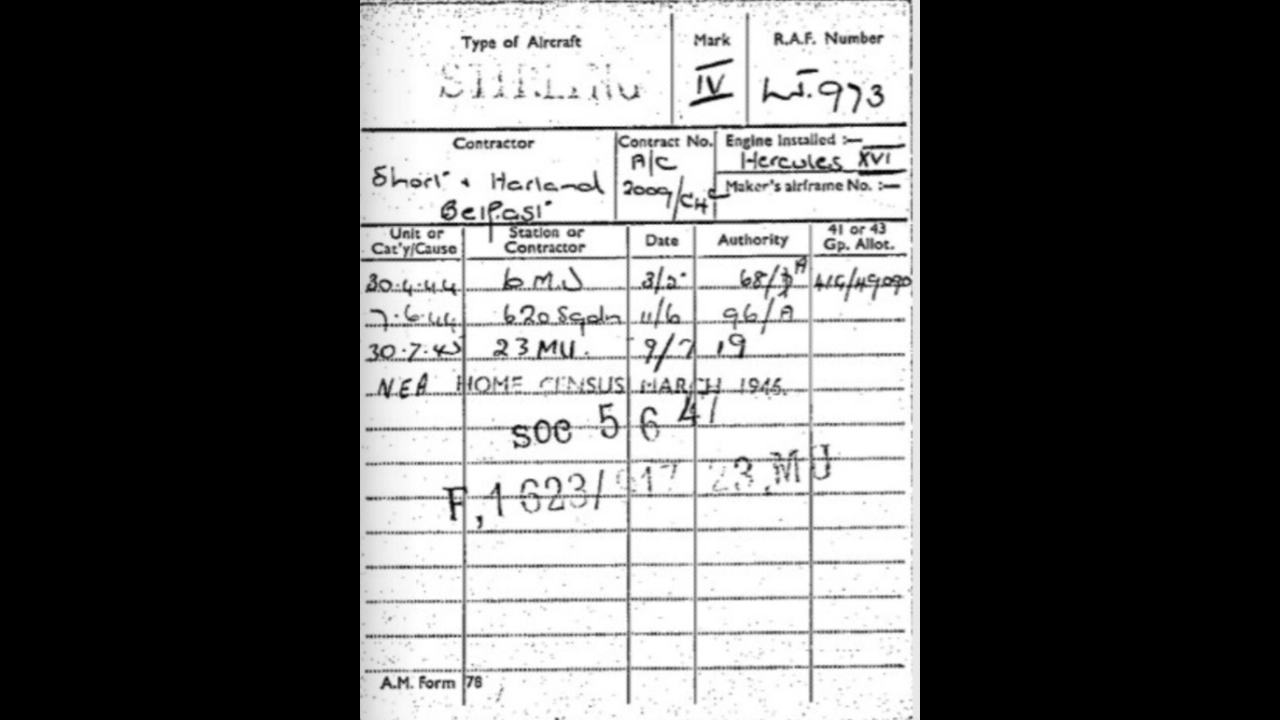 Type of Aircraft Mark R.A.F. Number
STIRLING IV LJ.973
Contractor Contract No. Engine Installed :—
Short & Harland A/C Hercules XVI
Belfast 2009/CHC Maker's airframe No. :—
Unit or Cat'y/Cause Station or Contractor Date Authority 41 or 43 Gp. Allot.
30.4.44 6 MU 3/5 68/ A
7.6.44 620 Sqdn 11/6 96/A
30.7.45 23 MU. 9/7 19
NEA HOME CENSUS MARCH 1946.
soc 5 6 47
F,1623/ 23.MU
A.M. Form 78